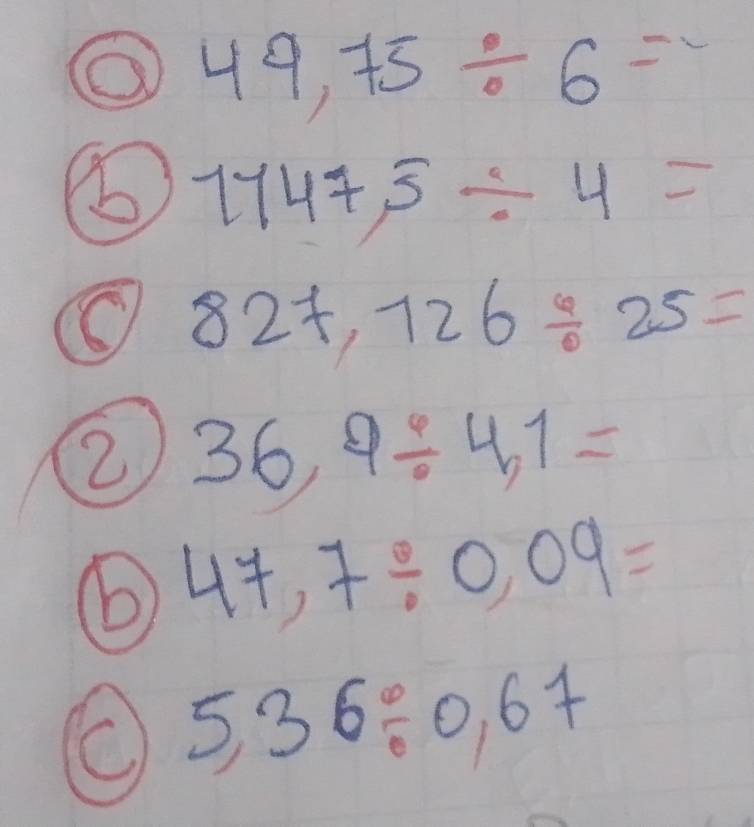 a 49,75 ÷ 6 =
b 1147,5 ÷ 4 =
c 827,126 ÷ 25 =
2 36,9 ÷ 4,1 =
b 47,7 ÷ 0,09 =
c 5,36 ÷ 0,67